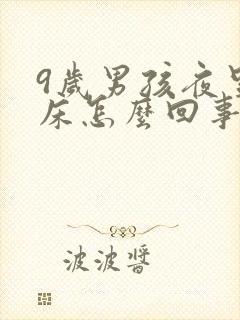 9歲男孩夜里
床怎麼回事
波波醬